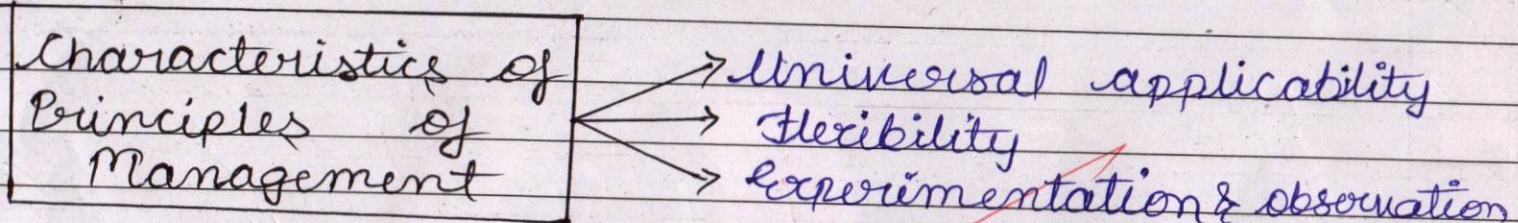 Characteristics of
Principles of
Management
Universal applicability
Flexibility
Experimentation & observation